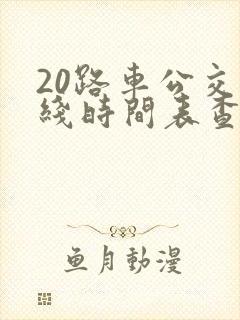 20路車公交
綫時間表查
魚月動漫